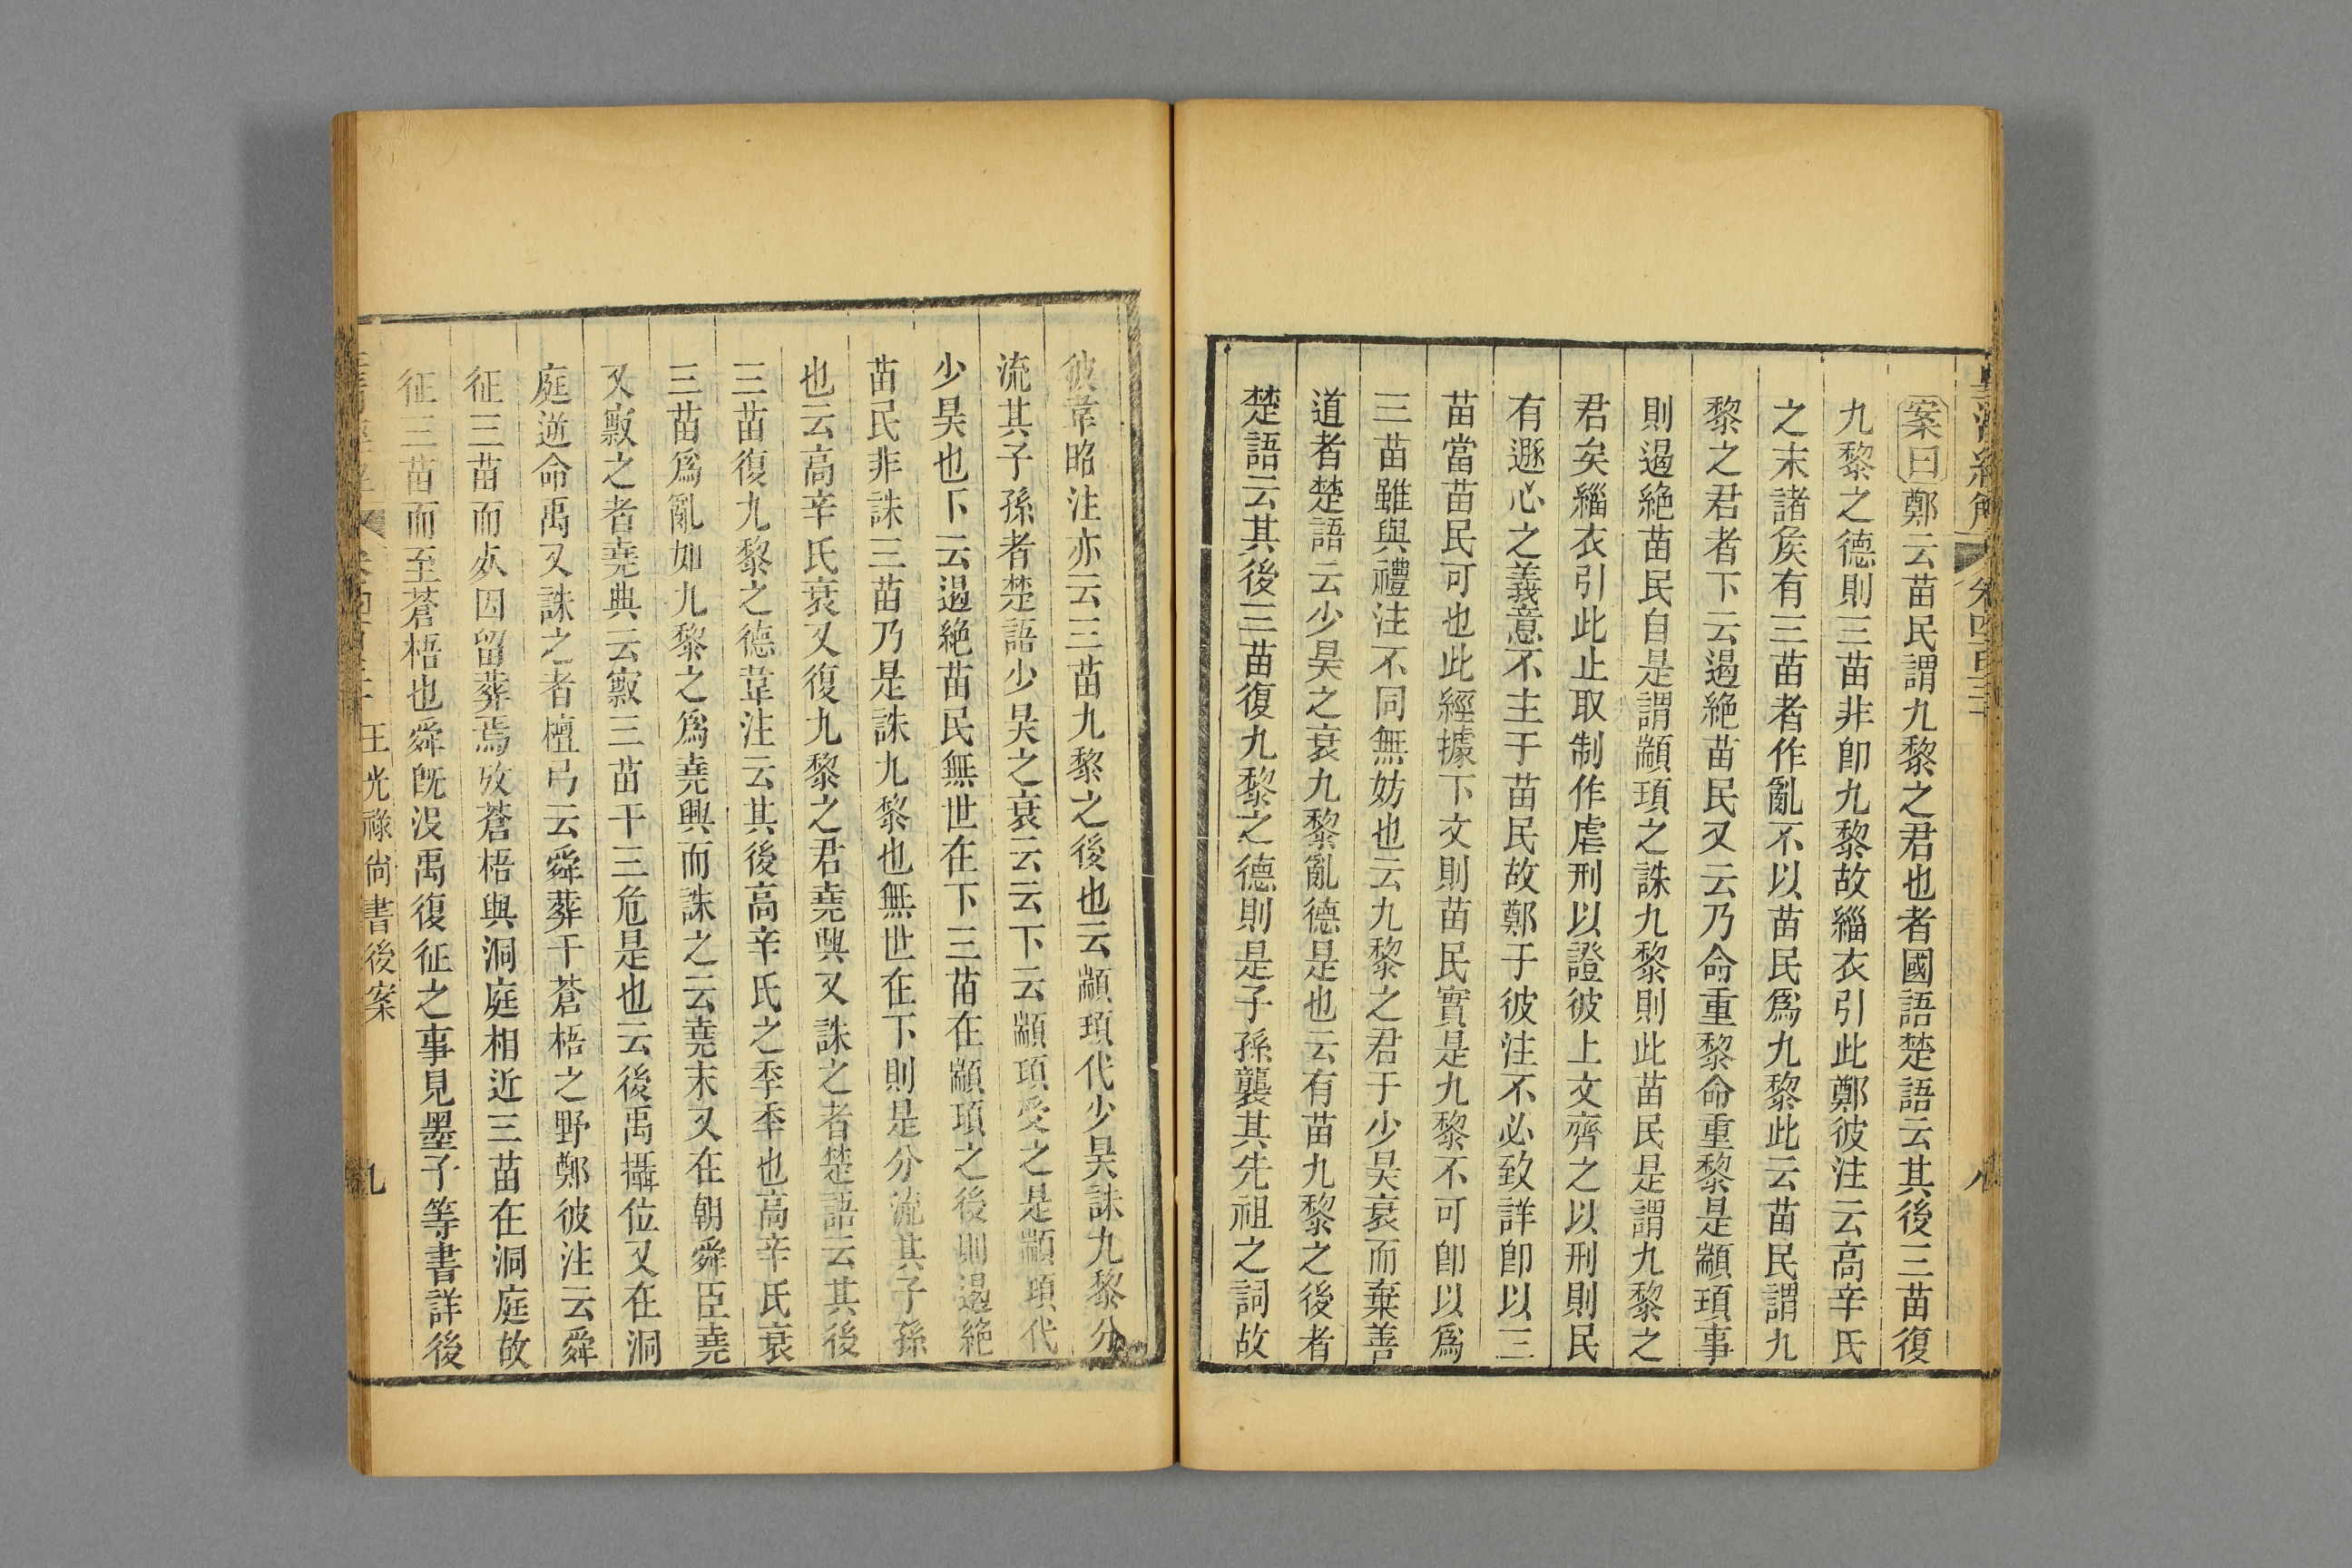 皇清經解
卷四百三十
八
案曰鄭云苗民謂九黎之君也者國語楚語云其後三苗復
九黎之德則三苗非卽九黎故緇衣引此鄭彼注云高辛氏
之末諸矦有三苗者作亂不以苗民爲九黎此云苗民謂九
黎之君者下云遏絶苗民又云乃命重黎命重黎是顓頊事
則遏絶苗民自是謂顓頊之誅九黎則此苗民是謂九黎之
君矣緇衣引此止取制作虐刑以證彼上文齊之以刑則民
有遯心之義意不主于苗民故鄭于彼注不必致詳卽以三
苗當苗民可也此經據下文則苗民實是九黎不可卽以爲
三苗雖與禮注不同無妨也云九黎之君于少昊衰而棄善
道者楚語云少昊之衰九黎亂德是也云有苗九黎之後者
楚語云其後三苗復九黎之德則是子孫襲其先祖之詞故
彼韋昭注亦云三苗九黎之後也云顓頊代少昊誅九黎分
流其子孫者楚語少昊之衰云云下云顓頊受之是顓頊代
少昊也下云遏絶苗民無世在下三苗在顓頊之後則遏絶
苗民非誅三苗乃是誅九黎也無世在下則是分流其子孫
也云高辛氏衰又復九黎之君堯興又誅之者楚語云其後
三苗復九黎之德韋注云其後高辛氏之季季也高辛氏衰
三苗爲亂如九黎之爲堯興而誅之云堯末又在朝舜臣堯
又竄之者堯典云竄三苗于三危是也云後禹攝位又在洞
庭逆命禹又誅之者檀弓云舜葬于蒼梧之野鄭彼注云舜
征三苗而㱙因留葬焉攷蒼梧與洞庭相近三苗在洞庭故
征三苗而至蒼梧也舜旣沒禹復征之事見墨子等書詳後
王光祿尙書後案
九